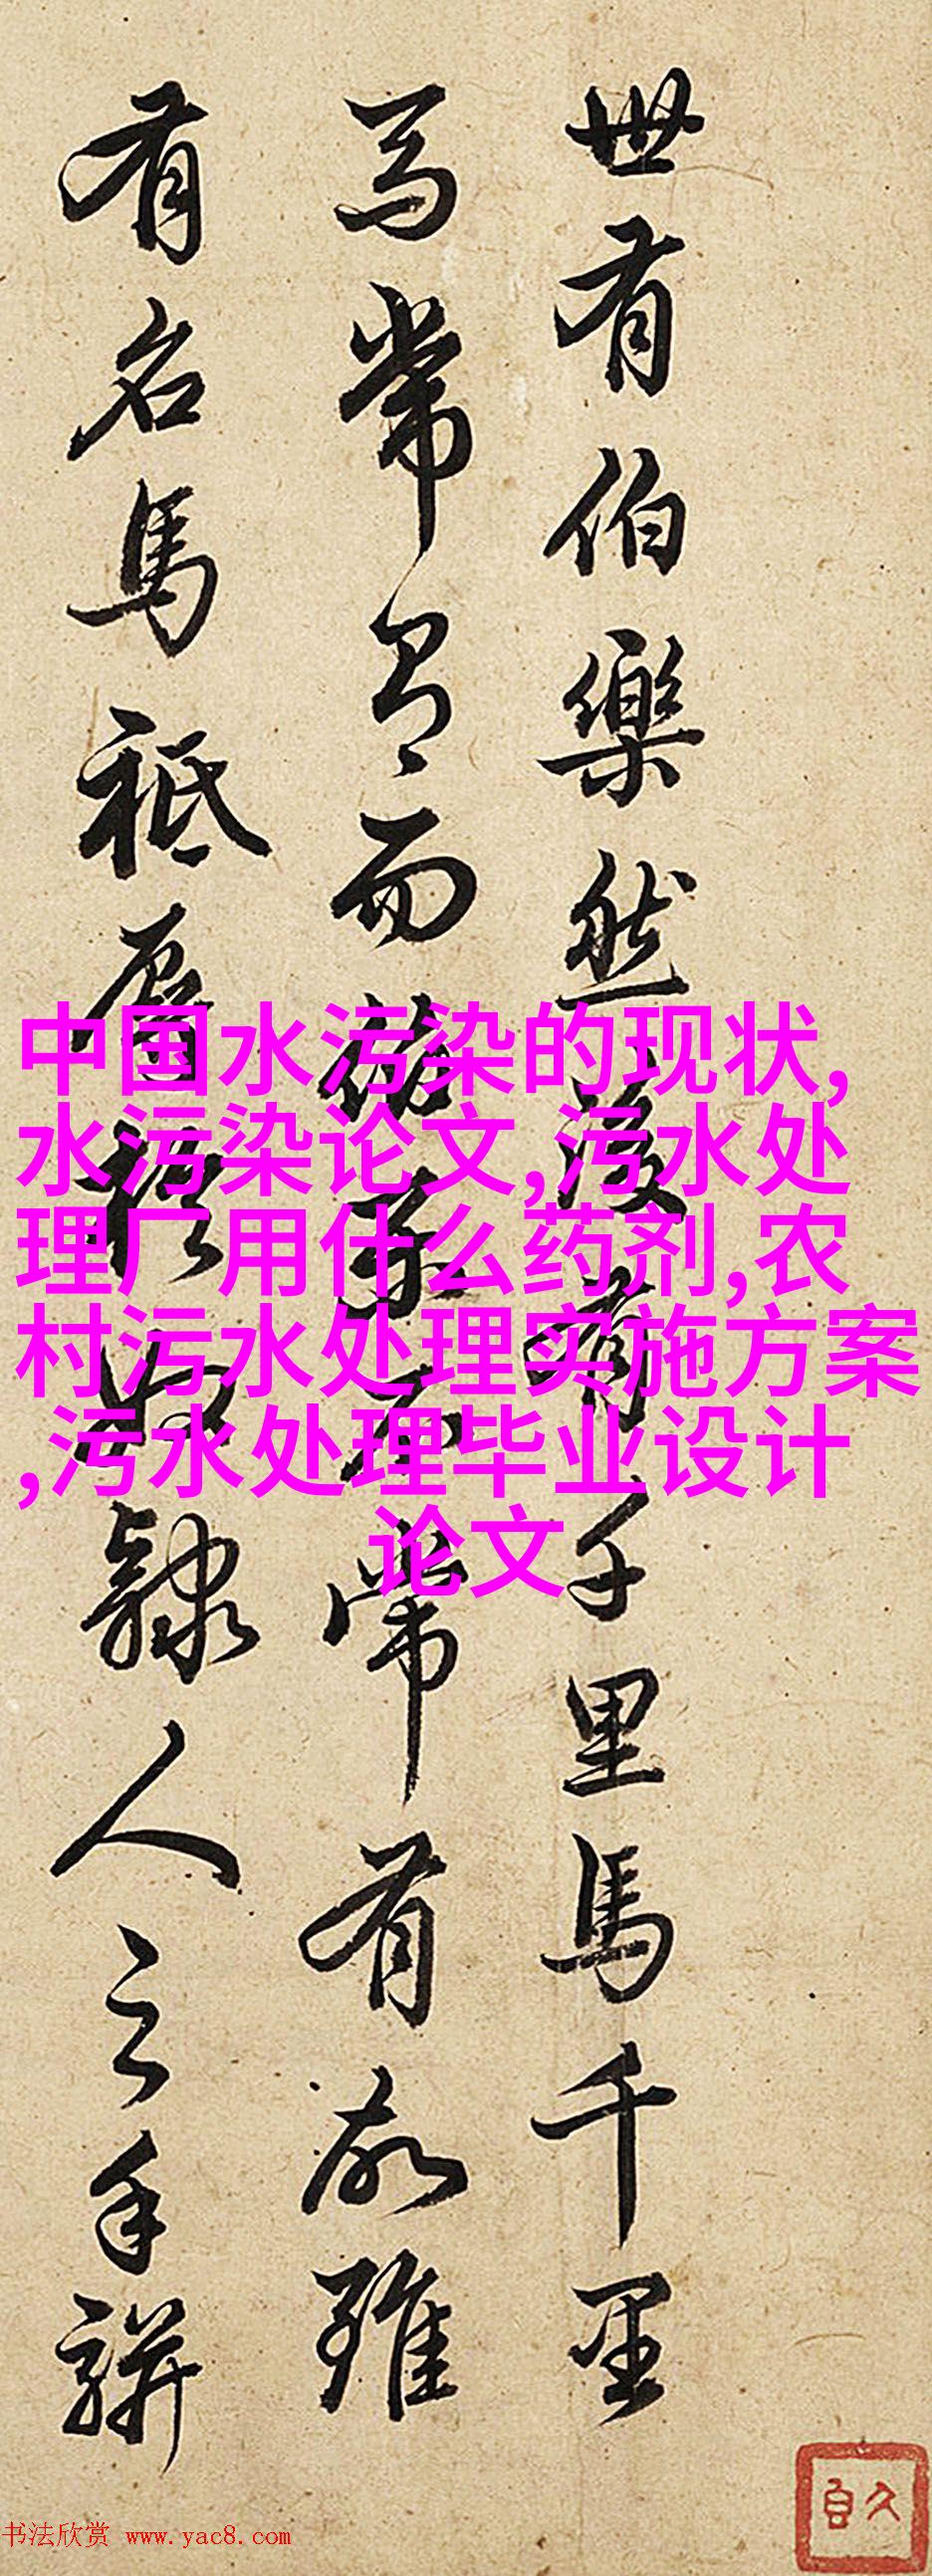 世有伯樂然後有千里馬千里
馬常有而伯樂不常有故雖
有名馬祗辱於奴隸人之手駢
中国水污染的现状,
水污染论文,污水处
理厂用什么药剂,农
村污水处理实施方案
,污水处理毕业设计
论文
书法欣赏 www.yac8.com